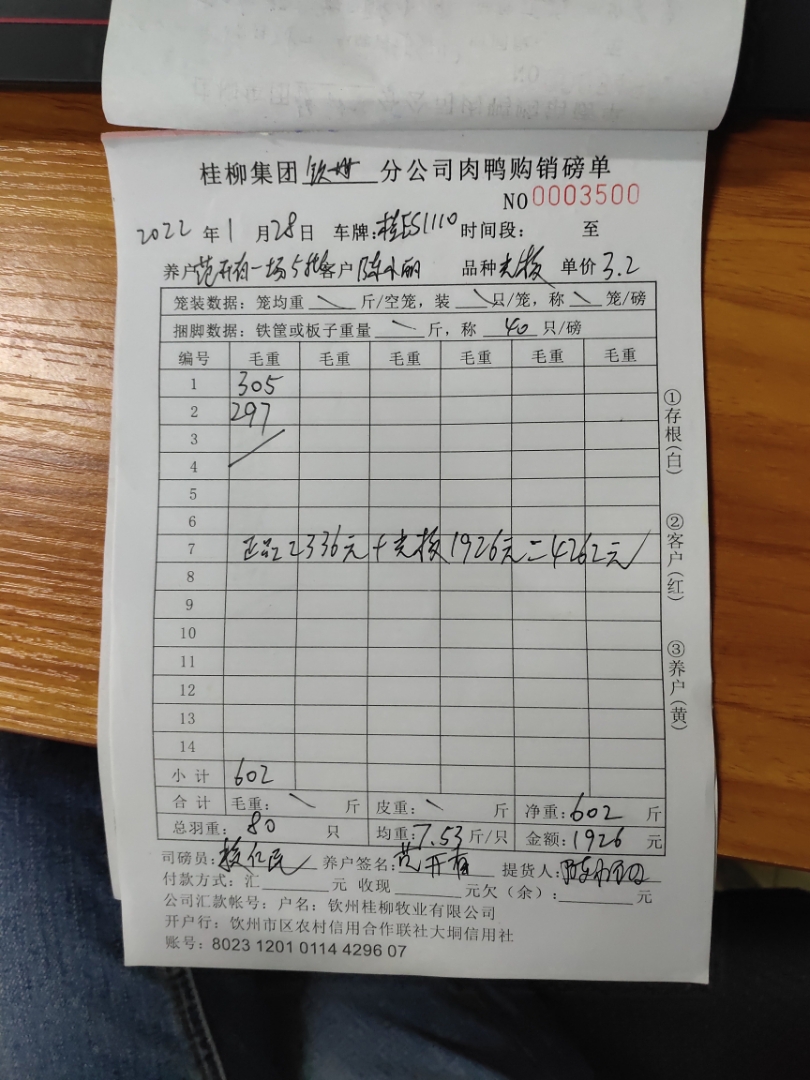 桂柳集团 钦州 分公司肉鸭购销磅单
NO 0003500
2022 年 1 月 28 日 车牌: 桂ES1110 时间段: 至
养户 范开有一场5批 客户 陈小丽 品种 单价 3.2
笼装数据: 笼均重 \ 斤/空笼, 装 \ 只/笼, 称 \ 笼/磅
捆脚数据: 铁筐或板子重量 \ 斤, 称 40 只/磅
编号 毛重 毛重 毛重 毛重 毛重 毛重
1 305
2 297
3
4
5
6
7 正品 2336元 + 1926元 = 4262元
8
9
10
11
12
13
14
小计 602
合计 毛重: \ 斤 皮重: \ 斤 净重: 602 斤
总羽重: 80 只 均重: 7.53 斤/只 金额: 1926 元
司磅员: 养户签名: 范开有 提货人:
付款方式: 汇 元 收现 元欠(余): 元
公司汇款帐号: 户名: 钦州桂柳牧业有限公司
开户行: 钦州市区农村信用合作联社大垌信用社
账号: 8023 1201 0114 4296 07
①存根(白)
②客户(红)
③养户(黄)